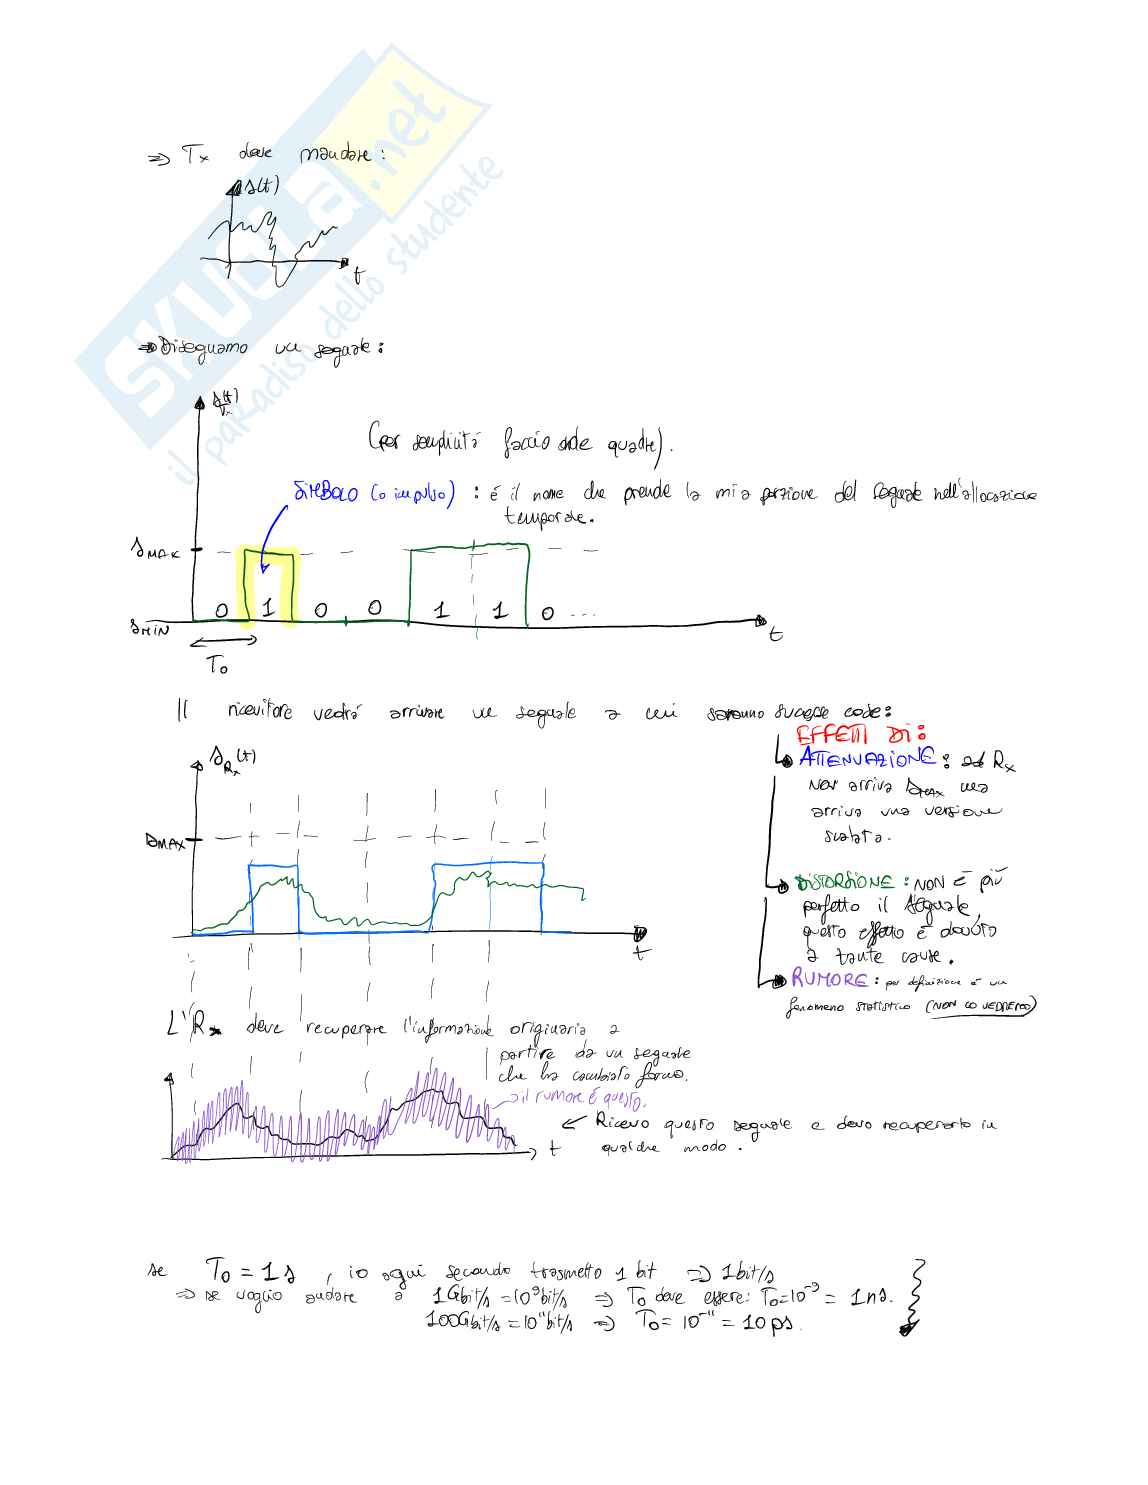 SKUOLA.net
il paradiso dello studente
⇒ Tx deve mandare:
s(t)
t
⇒ Disegnamo un segnale:
s(t)
Tx
(per semplicitá faccio onde quadre).
SIMBOLO (o impulso) : é il nome che prende la mia porzione del segnale nell'allocazione
temporale.
sMAX
0 1 0 0 1 1 0 ...
sMIN
t
To
Il ricevitore vedrá arrivare un segnale a cui saranno successe cose:
EFFETTI DI:
ATTENUAZIONE: ad Rx
Non arriva sMAX ma
arriva una versione
scalata.
sRx(t)
sMAX
t
DISTORSIONE: NON É PIÚ
perfetto il segnale,
questo effetto é dovuto
a tante cause.
RUMORE: per definizione é un
fenomeno statistico (NON LO VEDREMO)
L'Rx deve recuperare l'informazione originaria a
partire da un segnale
che ha cambiato forma.
⇒ il rumore é questo.
← Ricevo questo segnale e devo recuperarlo in
qualche modo.
t
se To = 1 s , io ogni secondo trasmetto 1 bit ⇒ 1 bit/s
⇒ se voglio andare a 1Gbit/s = 10⁹bit/s ⇒ To deve essere: To=10⁻⁹ = 1ns.
100Gbit/s = 10¹¹bit/s ⇒ To = 10⁻¹¹ = 10 ps.